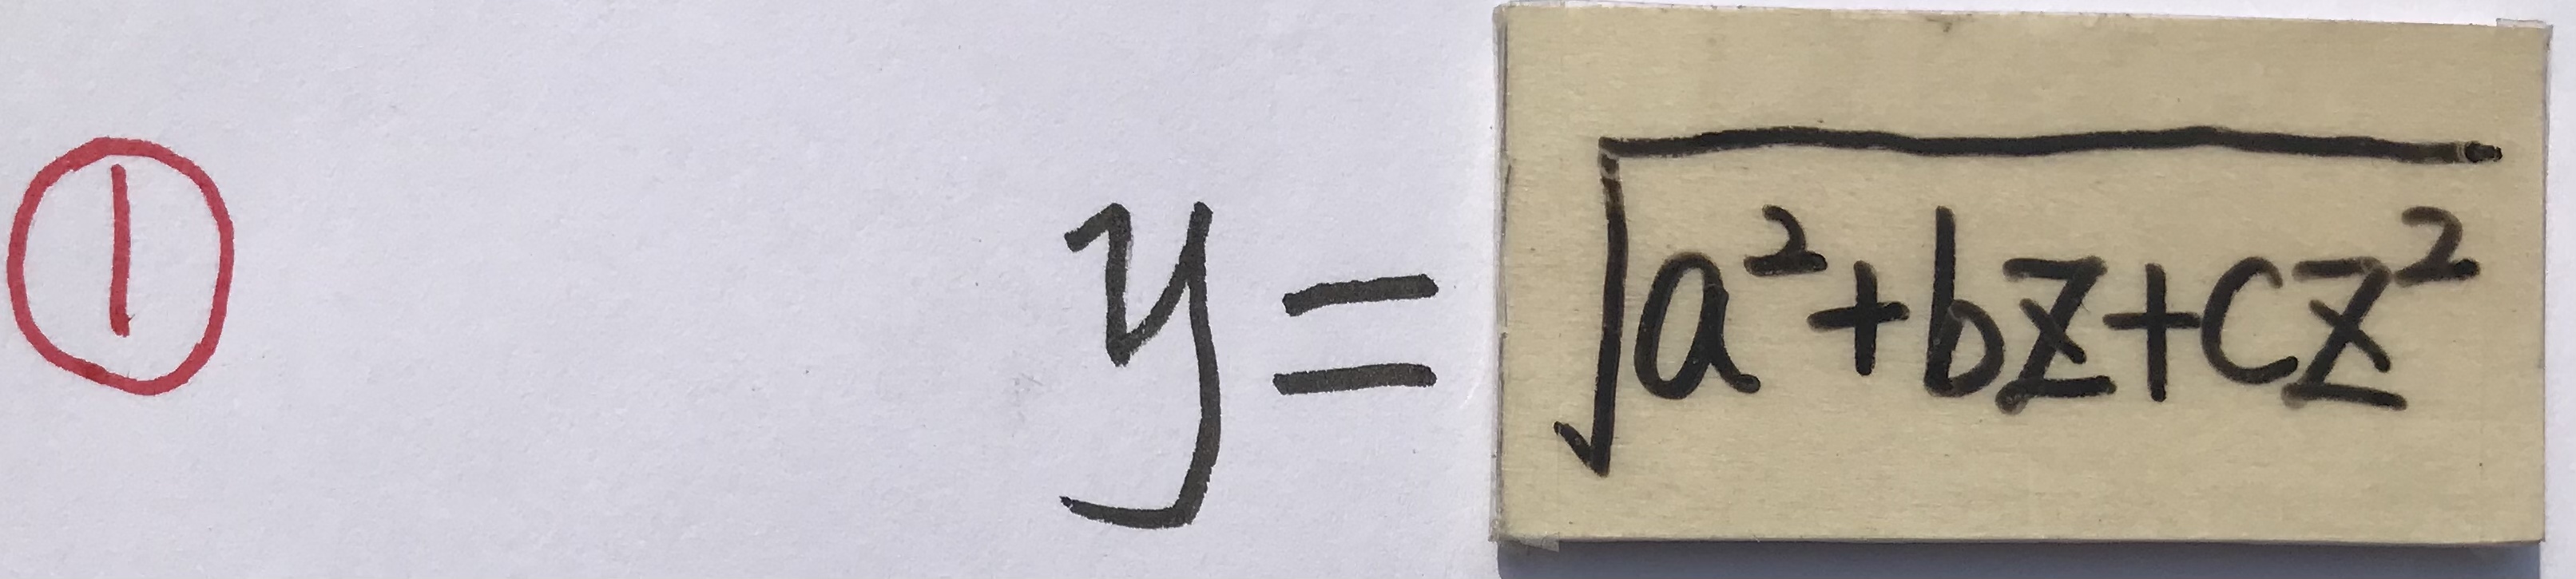 ① y = √(a²+bz+cz²)